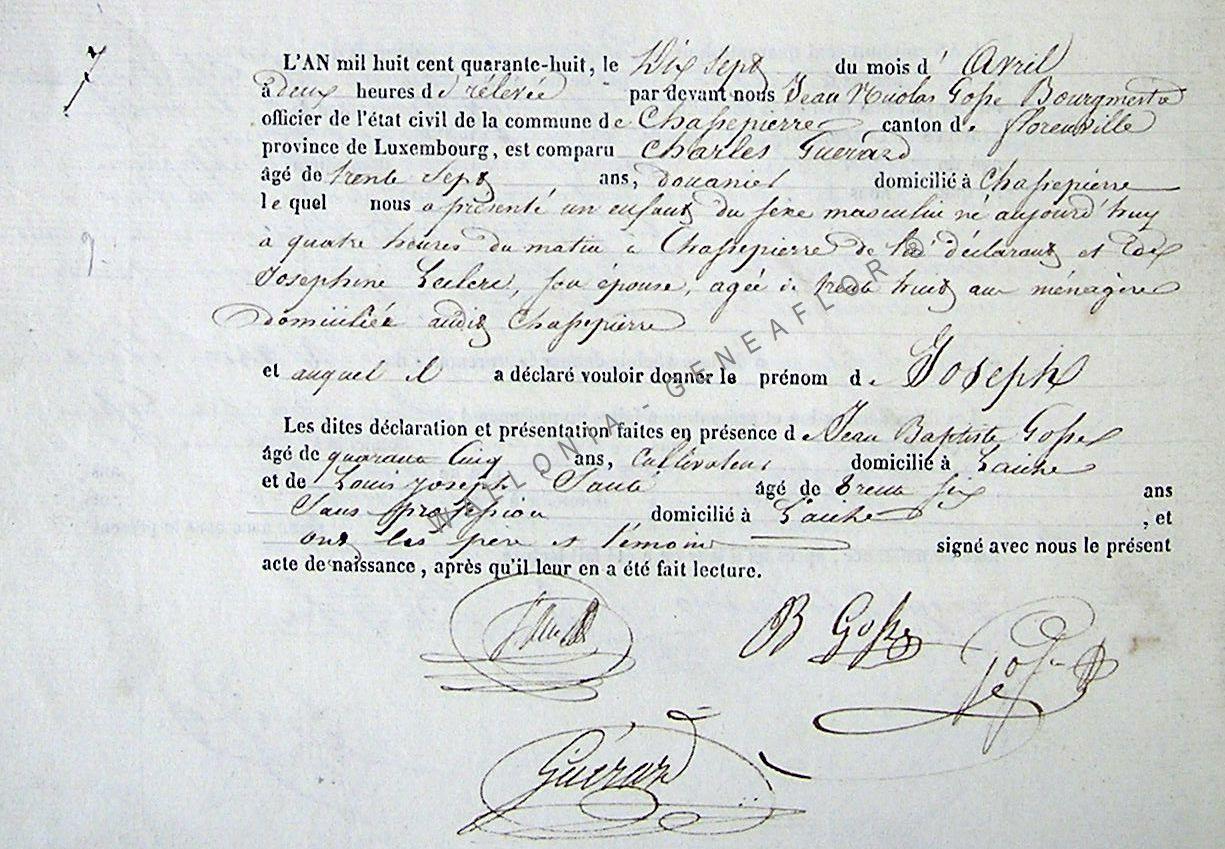 7
L'AN mil huit cent quarante-huit, le Dix sept du mois d' Avril
à deux heures de rélévée par devant nous Jean Nicolas Gosse Bourgmestre
officier de l'état civil de la commune de Chassepierre canton de florenville
province de Luxembourg, est comparu Charles Guerard
âgé de trente sept ans, douanier domicilié à Chassepierre
le quel nous a présenté un enfant du sexe masculin né aujourd'huy
à quatre heures du matin à Chassepierre de lui déclarant et de
Josephine Leclerc, son épouse, agée de trente huit ans ménagère
domiciliée audit Chassepierre
et auquel il a déclaré vouloir donner le prénom de Joseph
Les dites déclaration et présentation faites en présence de Jean Baptiste Gosse
âgé de quarante cinq ans, cultivateur domicilié à Laiche
et de Louis Joseph âgé de trente six ans
sans profession domicilié à Laiche, et
ont les père et témoins signé avec nous le présent
acte de naissance, après qu'il leur en a été fait lecture.
WALLONIA - GENEAFLOR
JB Gosse
Guérard